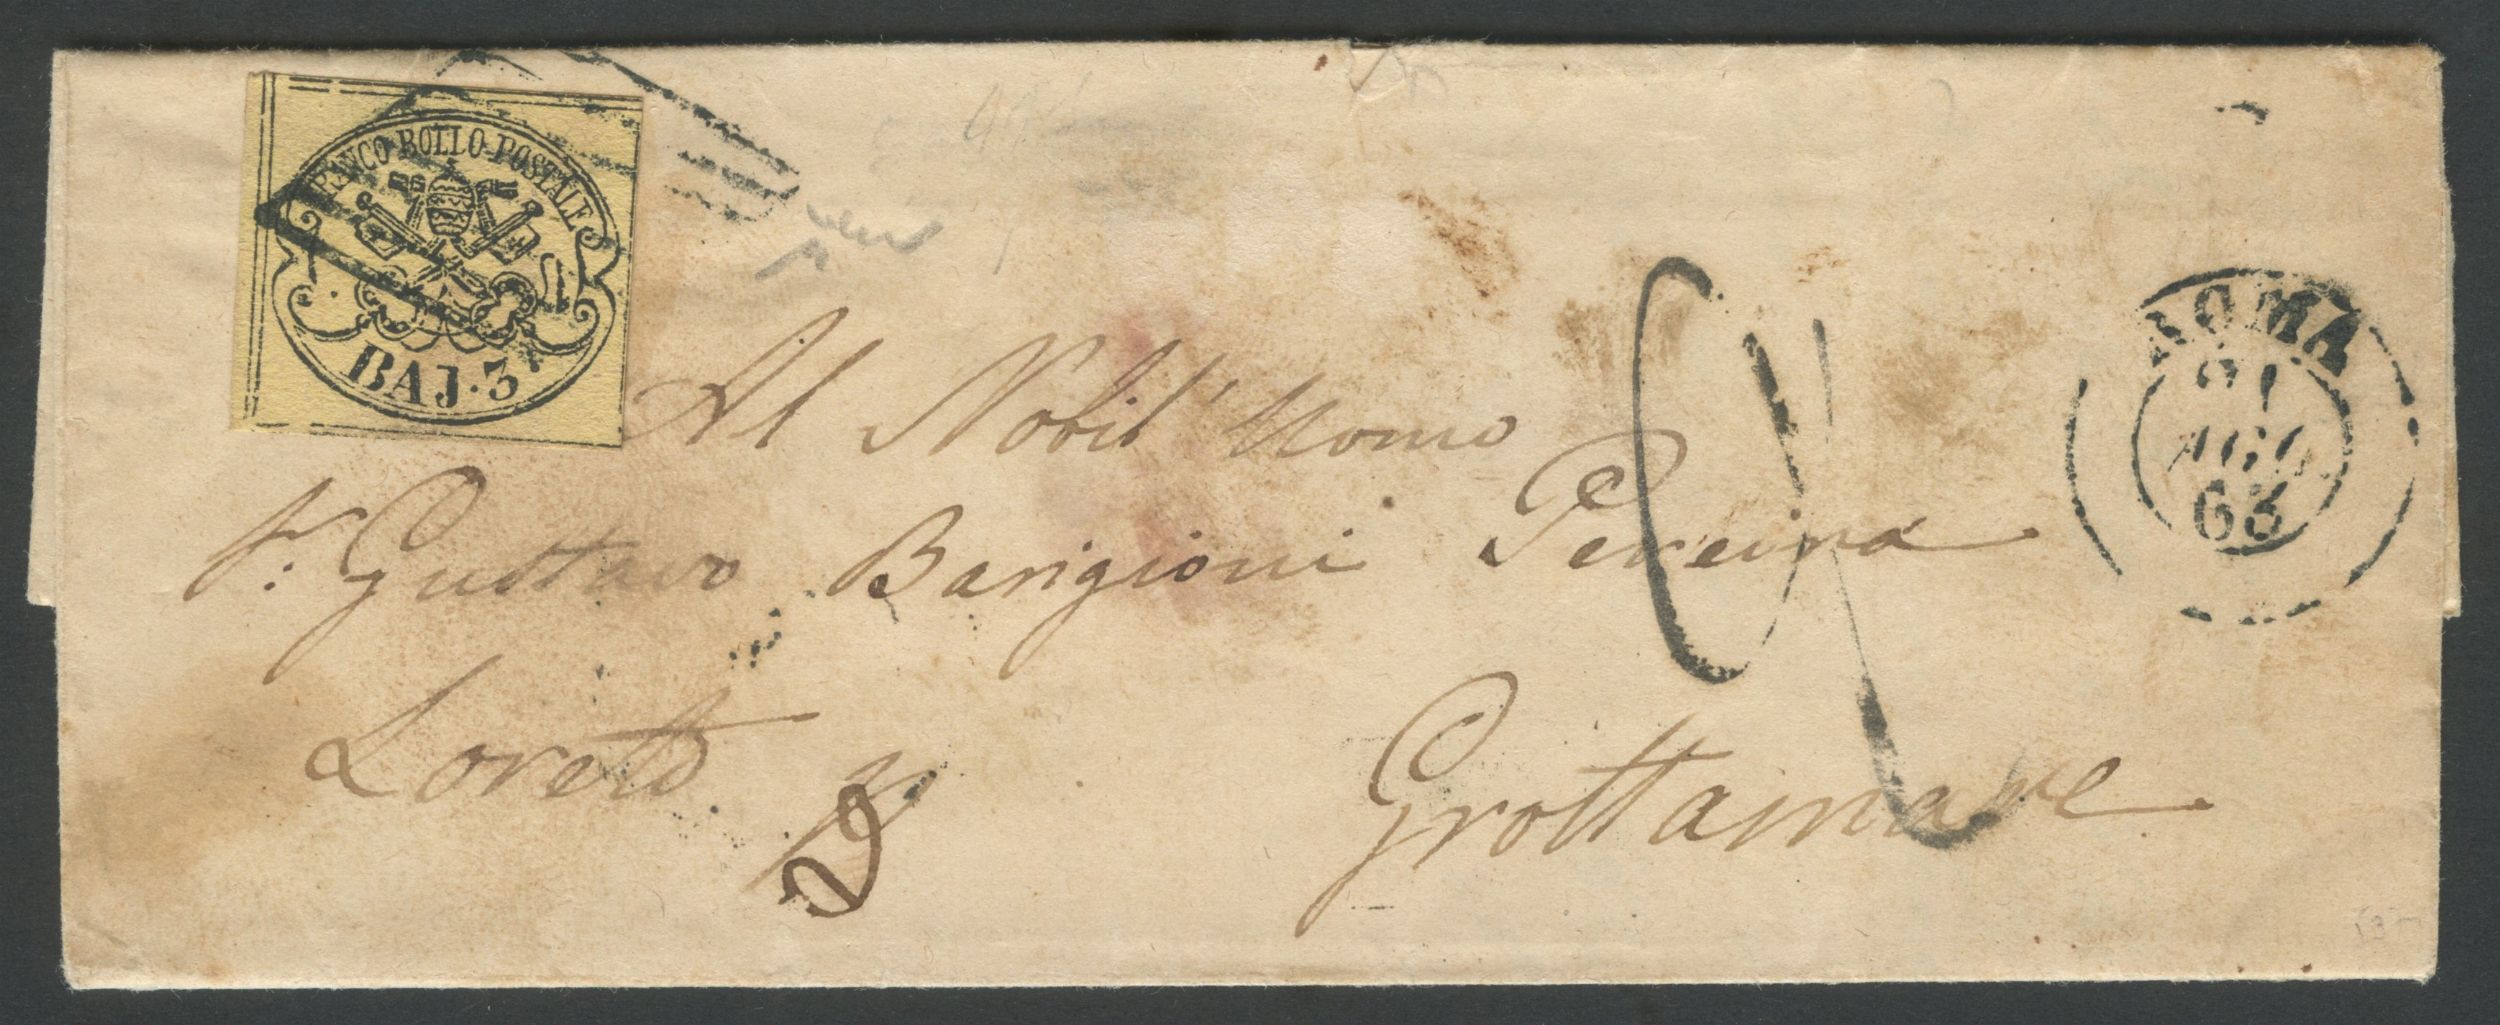 FRANCO BOLLO POSTALE
BAJ. 3
ROMA
21
AGO.
63
Al Nobil' Uomo
Sr. Gustavo Barigioni Pereira
Loreto
p
Grottamare